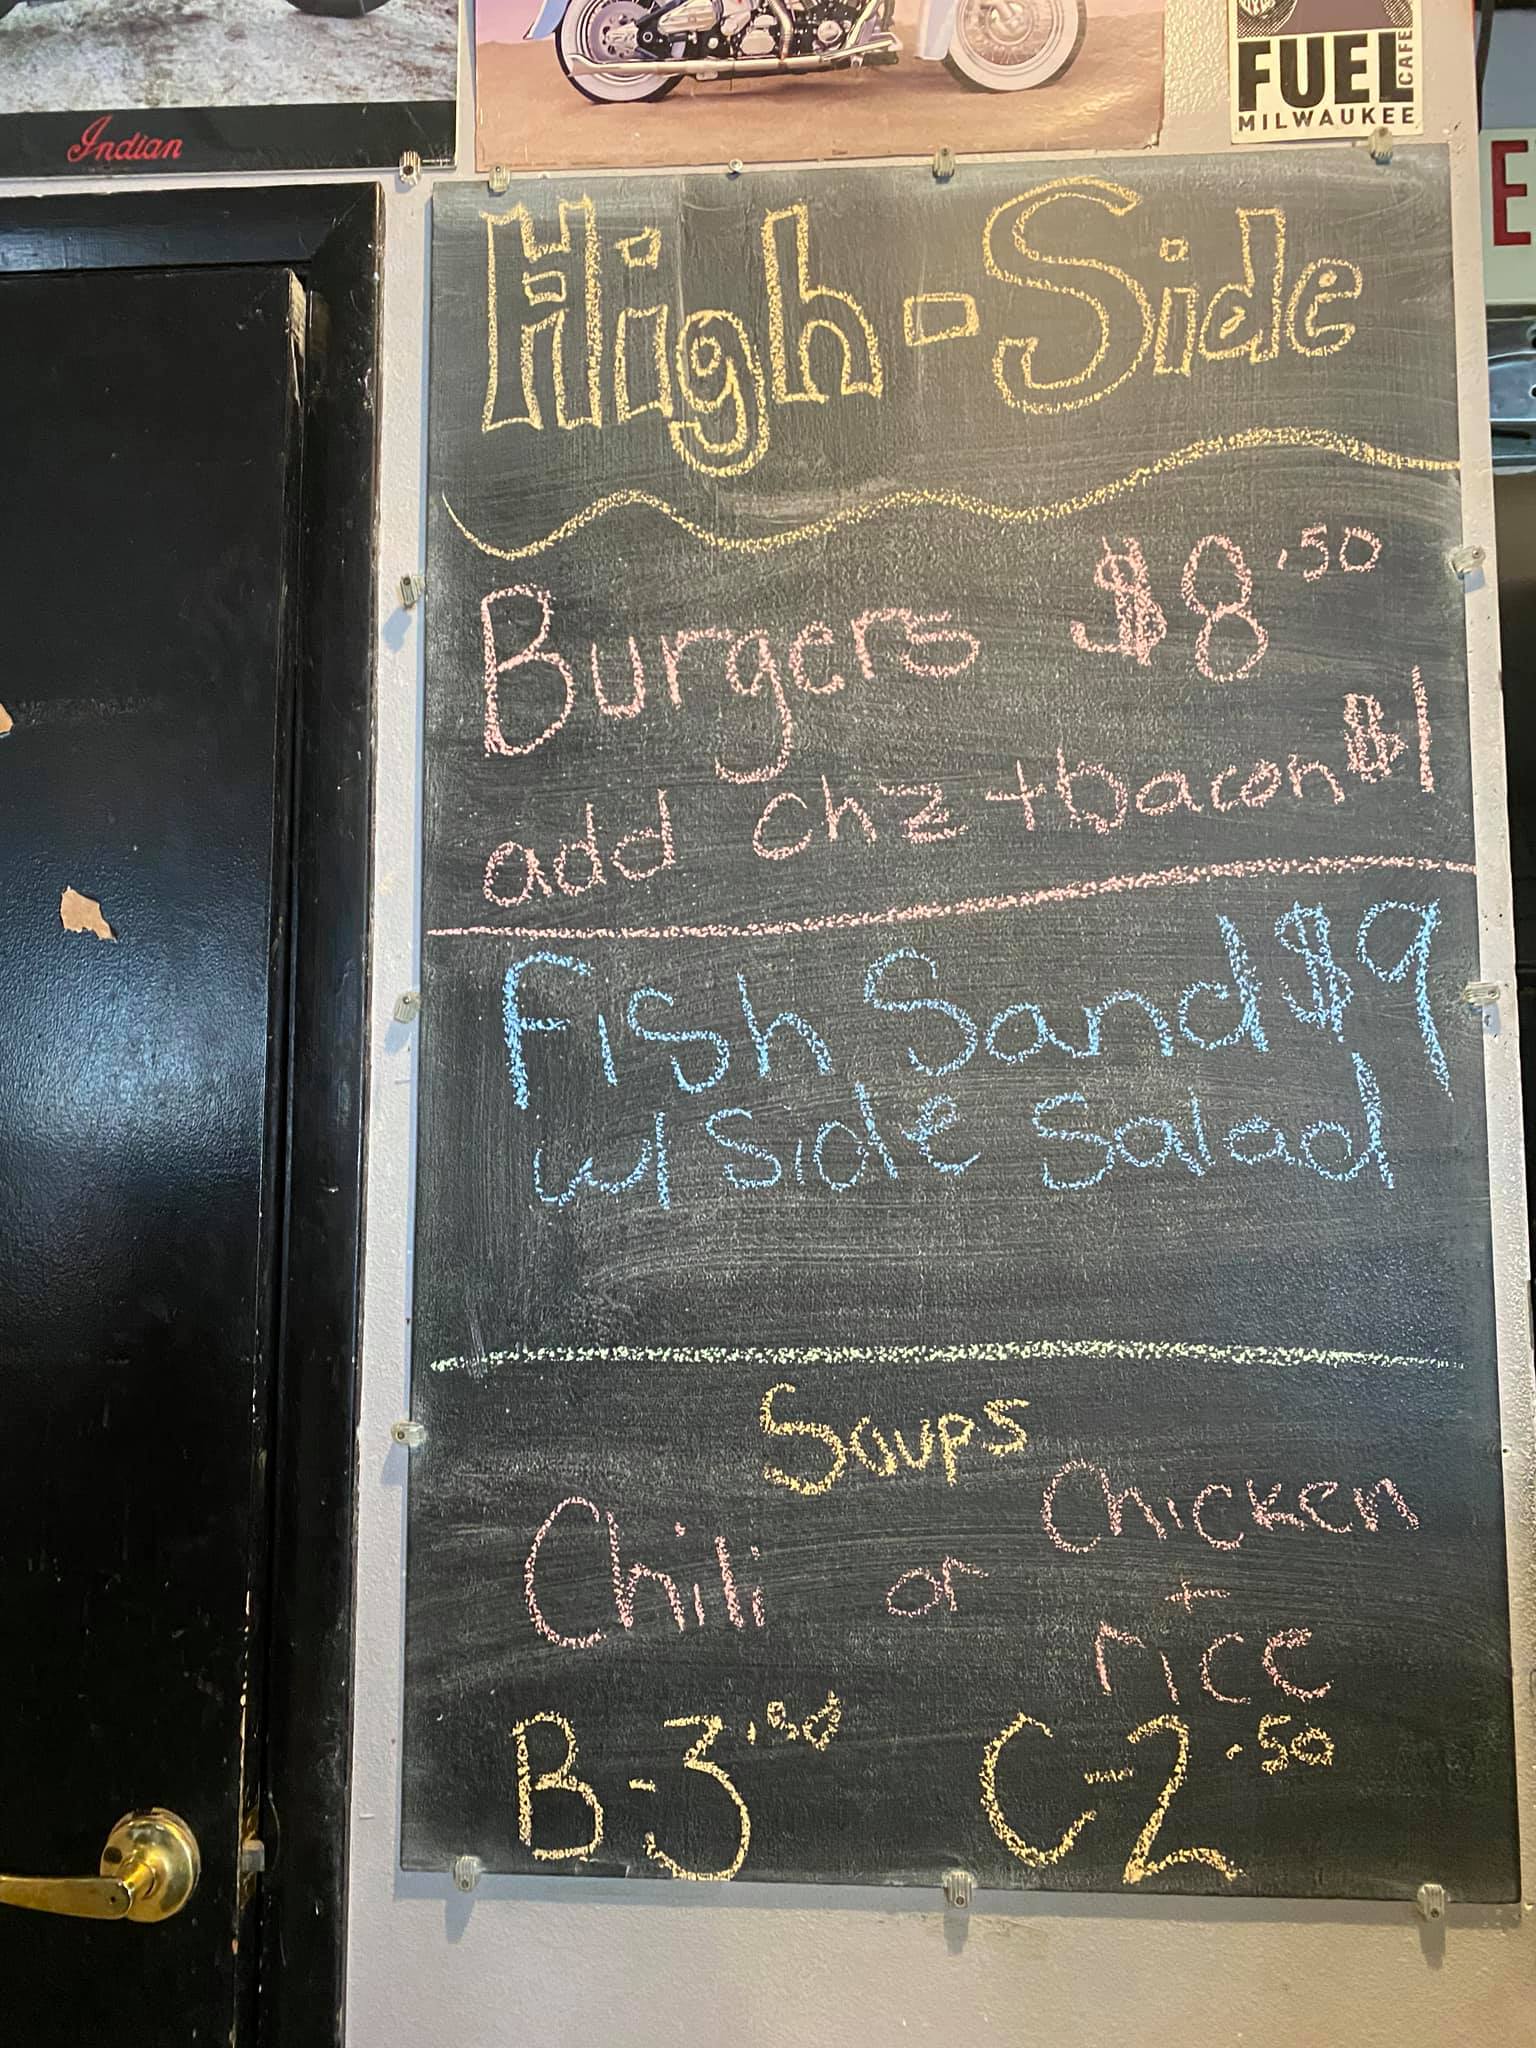 Indian
FUEL
CAFE
MILWAUKEE
E
High-Side
Burgers $8.50
add chz + bacon $1
Fish Sand $9
w/ Side Salad
Soups
Chili or Chicken
+
rice
B-3.50
C-2.50